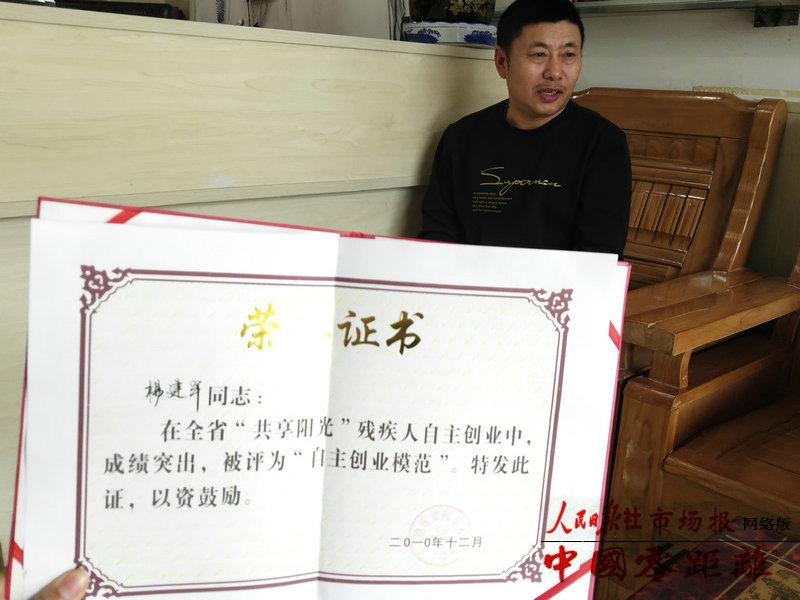 Superman
荣 证书
杨建军同志：
在全省“共享阳光”残疾人自主创业中，
成绩突出，被评为“自主创业模范”。特发此
证，以资鼓励。
二〇一〇年十二月
人民日报社市场报 网络版
中國零距離